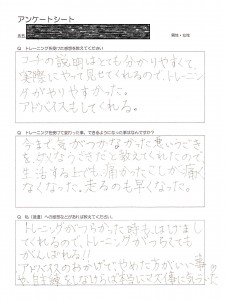 アンケートシート
氏名
男性・女性
Q トレーニングを受けた感想を教えてください
コーチの説明はとても分かりやすくて、
実際にやって見せてくれるので、トレーニン
グがやりやすかった。
アドバイスもしてくれる。
Q トレーニングを受けて変わった事、できるようになった事はなんですか?
今まで、気がつかなかった悪いうごき
を、よくなうごきだと教えてくれたので、
生活する上でも、痛かったこしが痛く
なくなった。走るのも早くなった。
への感想などがあれば教えてください。
トレーニングがつらかった時も、はげまし
てくれるので、トレーニングがつらくても
がんばれる!!
アドバイスのおかげで、やめた方がいい事
や、自主練をしなければ